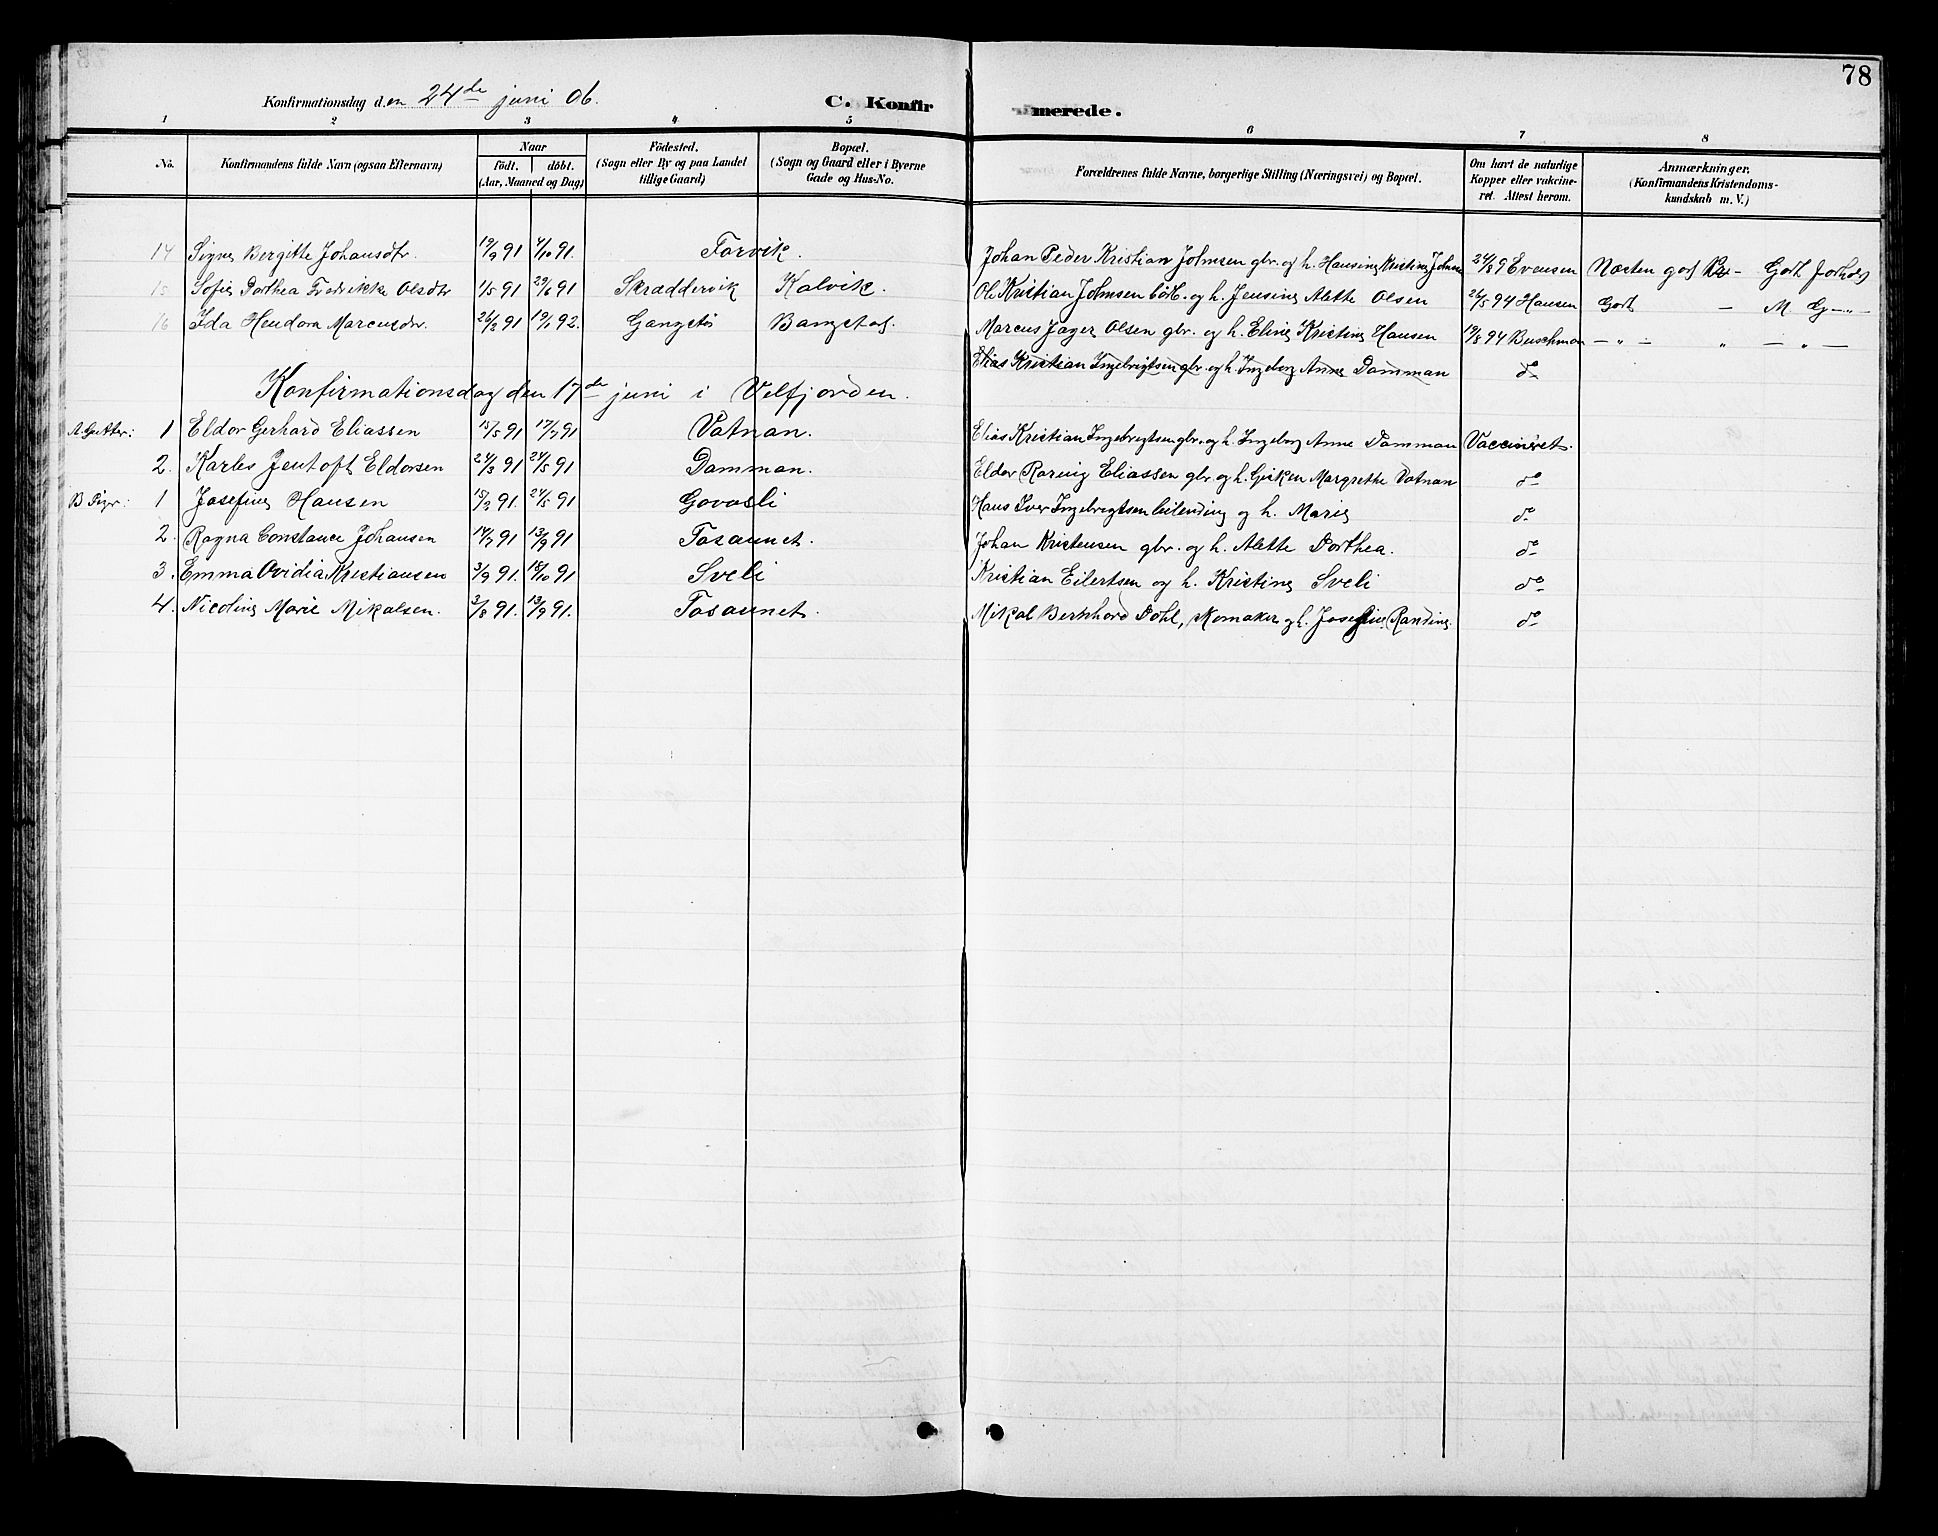 78
Konfirmationsdag den 24de juni 06. C. Konfir merede.
1 2 3 4 5 6 7 8
No. Konfirmandens fulde Navn (ogsaa Efternavn) Naar födt. döbt. (Aar, Maaned og Dag) Födested. (Sogn eller By og paa Landet tillige Gaard) Bopæl. (Sogn og Gaard eller i Byerne Gade og Hus-No. Forældrenes fulde Navne, borgerlige Stilling (Næringsvei) og Bopæl. Om havt de naturlige Kopper eller vakcineret. Attest herom. Anmærkninger. (Konfirmandens Kristendomskundskab m. V.)
14 Signe Bergitte Johansdtr. 19/9 91 4/10 91. Forvik. Johan Peder Kristian Johnsen gbr. og h. Hansine Kristine Johns 24/8 9 Evensen Næsten god Godt Forhold
15 Sofie Dorthea Fredrikke Olsdtr 1/5 91 29/6 91 Skræddervik Kalvik. Ole Kristian Johnsen og h. Jensine Alette Olsen 26/5 94 Hansen Godt — M. G — " —
16 Ida Hendora Marcusdtr. 26/2 91 19/1 92. Gangstø Bangstad. Marcus Jager Olsen gbr. og h. Eline Kristine Hansen 19/8 94 Buschman — " — " — " —
Elias Kristian Ingebrigtsen gbr. og h. Ingeborg Anne Damman do
Konfirmationsdag den 17de juni i Velfjorden.
A. Gutter: 1 Eldor Gerhard Eliassen 15/5 91 17/7 91 Vatnan. Elias Kristian Ingebrigtsen gbr. og h. Ingeborg Anne Damman Vaccineret.
2. Karles Jentoft Eldorsen 24/3 91 24/5 91 Damman. Eldor Rornig Eliassen gbr og h. Gisken Margrethe Vatnan do
B Piger: 1 Josefine Hansen 15/2 91. 24/5 91 Govasli Hans Iver Ingebregtsen leilending og h. Marie do
2. Ragna Constance Johansen 14/7 91 13/9 91 Tosaunet. Johan Kristensen gbr. og h. Alette Dorthea. do
3. Emma Ovidia Kristiansen 3/9 91. 18/10 91 Sveli Kristian Eilertsen og h. Kristine Sveli do
4. Nicoline Marie Mikalsen. 3/8 91. 13/9 91. Tosaunet. Mikal Bernhard Dohl, Skomaker og h. Josefine Randine. do